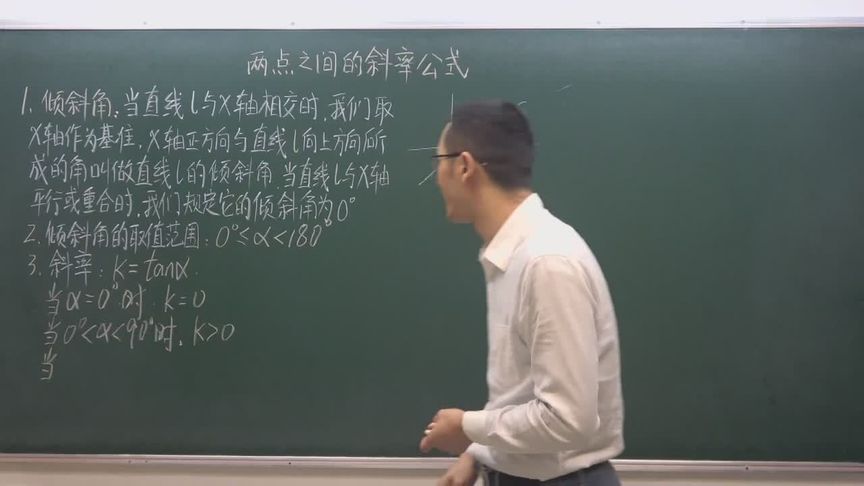 两点之间的斜率公式
1. 倾斜角:当直线l与X轴相交时,我们取
X轴作为基准,X轴正方向与直线l向上方向所
成的角叫做直线l的倾斜角.当直线l与X轴
平行或重合时,我们规定它的倾斜角为0°
2. 倾斜角的取值范围:0°≤α<180°
3. 斜率:k=tanα.
当α=0°时,k=0
当0°<α<90°时,k>0
当